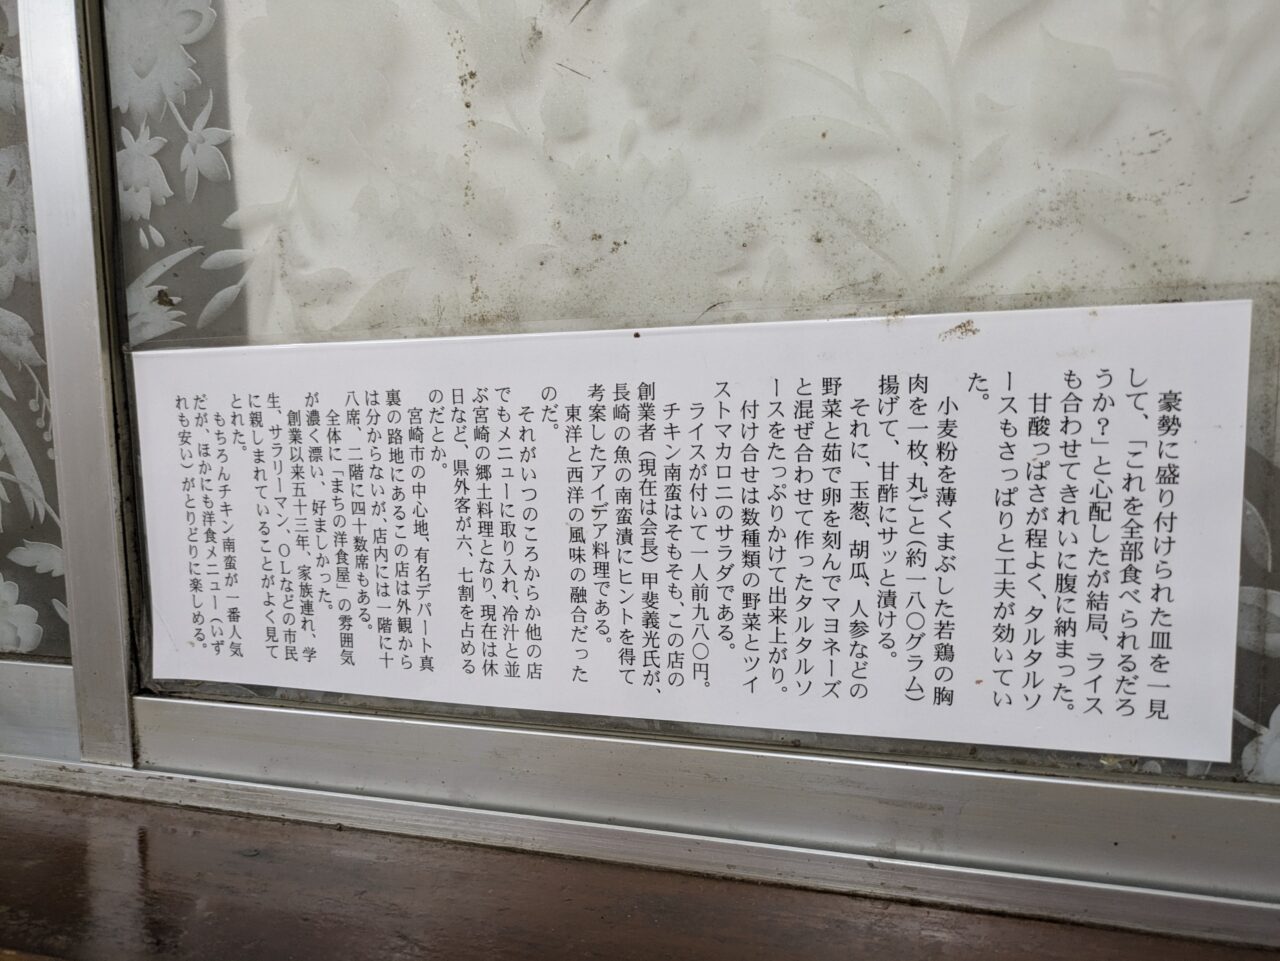 豪勢に盛り付けられた皿を一見
して、「これを全部食べられるだろ
うか?」と心配したが結局、ライス
も合わせてきれいに腹に納まった。
甘酸っぱさが程よく、タルタルソ
ースもさっぱりと工夫が効いてい
た。
小麦粉を薄くまぶした若鶏の胸
肉を一枚、丸ごと(約一八〇グラム)
揚げて、甘酢にサッと漬ける。
それに、玉葱、胡瓜、人参などの
野菜と茹で卵を刻んでマヨネーズ
と混ぜ合わせて作ったタルタルソ
ースをたっぷりかけて出来上がり。
付け合せは数種類の野菜とツイ
ストマカロニのサラダである。
ライスが付いて一人前九八〇円。
チキン南蛮はそもそも、この店の
創業者(現在は会長)甲斐義光氏が、
長崎の魚の南蛮漬にヒントを得て
考案したアイデア料理である。
東洋と西洋の風味の融合だった
のだ。
それがいつのころからか他の店
でもメニューに取り入れ、冷汁と並
ぶ宮崎の郷土料理となり、現在は休
日など、県外客が六、七割を占める
のだとか。
宮崎市の中心地、有名デパート真
裏の路地にあるこの店は外観から
は分からないが、店内には一階に十
八席、二階に四十数席もある。
全体に「まちの洋食屋」の雰囲気
が濃く漂い、好ましかった。
創業以来五十三年、家族連れ、学
生、サラリーマン、OLなどの市民
に親しまれていることがよく見て
とれた。
もちろんチキン南蛮が一番人気
だが、ほかにも洋食メニュー(いず
れも安い)がとりどりに楽しめる。